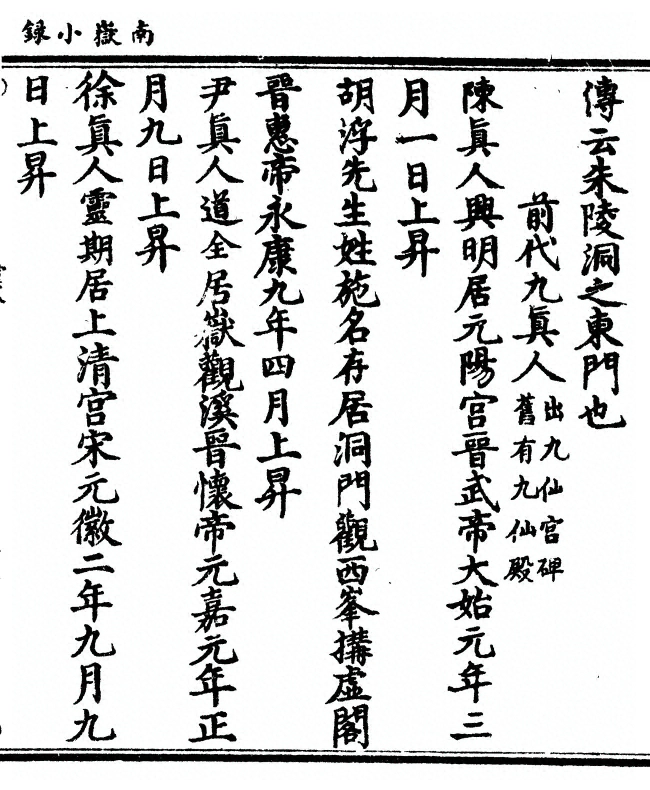 南嶽小錄
傳云朱陵洞之東門也
前代九眞人出九仙宮碑舊有九仙殿
陳眞人興明居元陽宮晉武帝大始元年三
月一日上昇
胡浮先生姓施名存居洞門觀西峯搆虛閣
晉惠帝永康九年四月上昇
尹眞人道全居嶽觀溪晉懷帝元嘉元年正
月九日上昇
徐眞人靈期居上清宮宋元徽二年九月九
日上昇